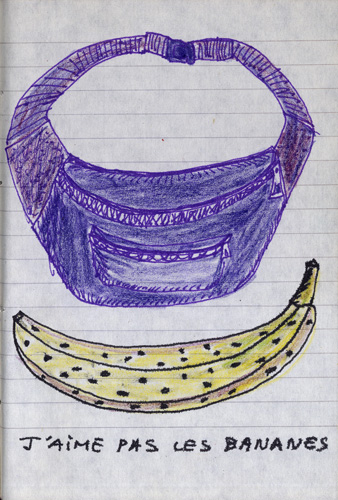 J'AIME PAS LES BANANES